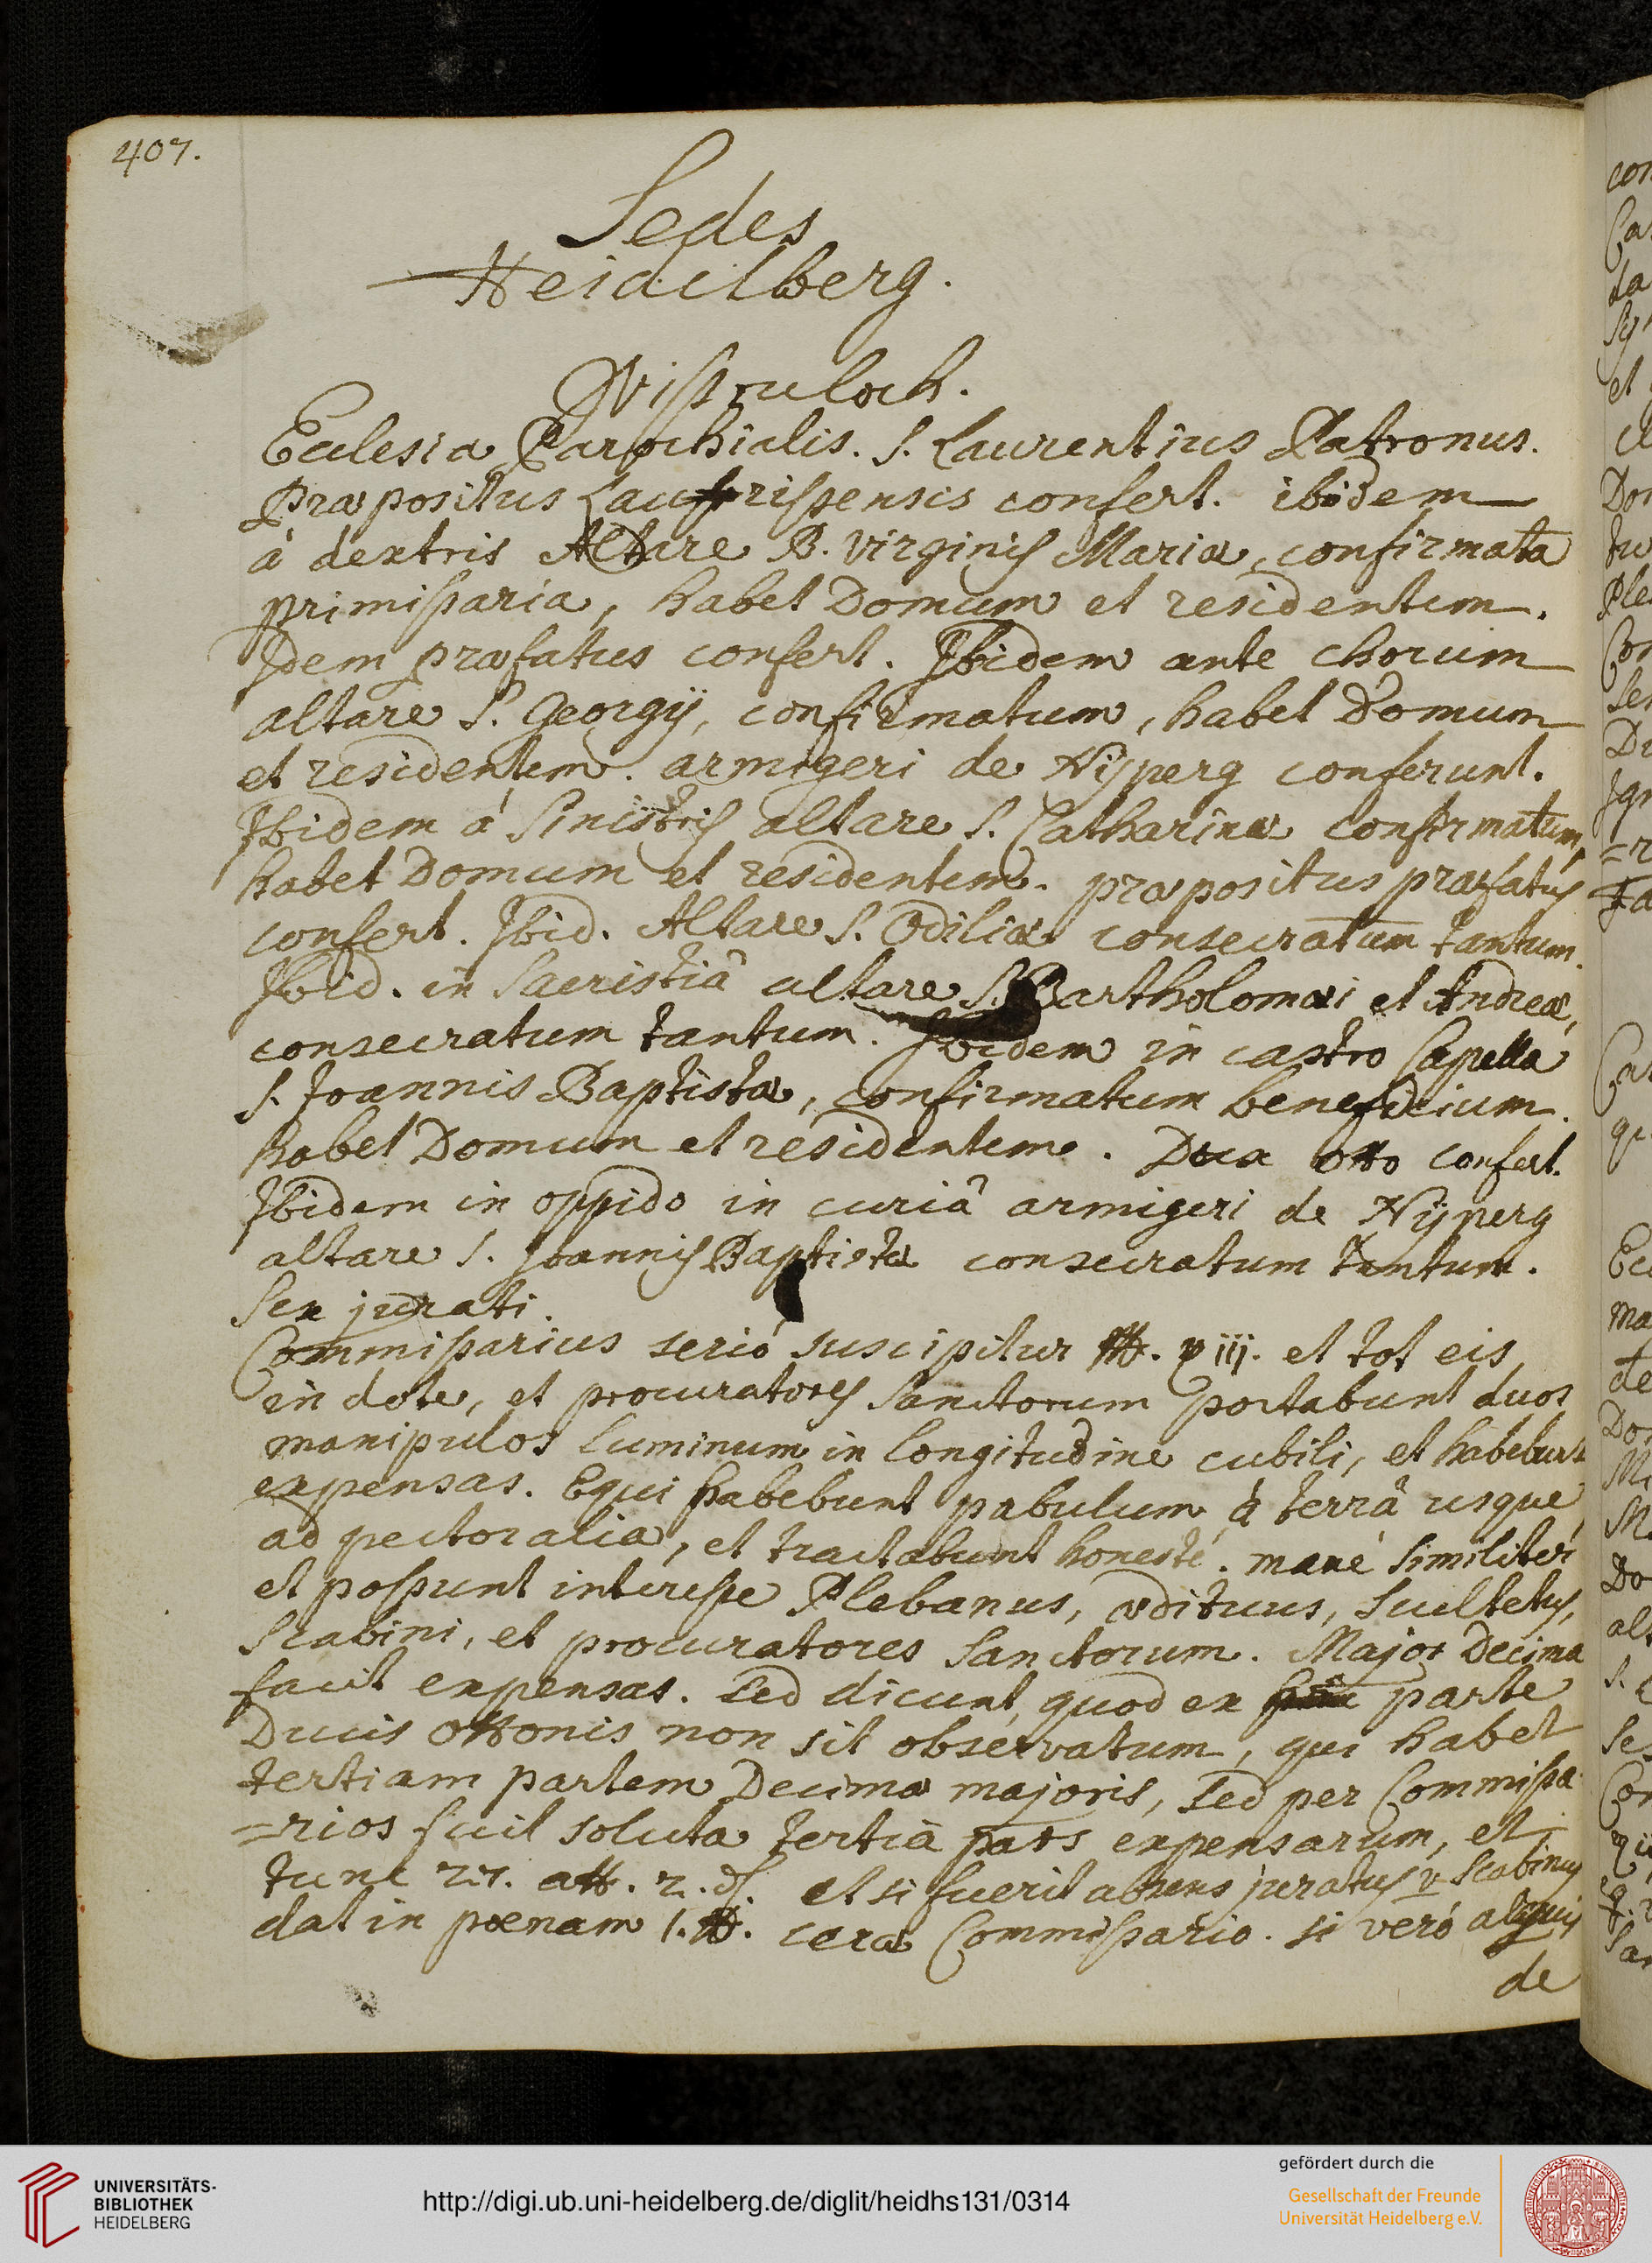 407.
Sedes
Heidelberg.
Wissenloch.
Ecclesia Parochialis. S. Laurentius Patronus.
Præpositus Laurissensis confert. ibidem
à dextris Altare B. Virginis Mariæ, confirmata
primissaria, habet Domum et residentem.
Idem præfatus confert. Ibidem ante chorum
altare S. Georgij, confirmatum, habet Domum
et residentem. armigeri de Nijperg conferunt.
Ibidem à Sinistris altare S. Catharinæ confirmatum,
habet Domum et residentem. præpositus præfatus
confert. Ibid. Altare S. Odiliæ consecratum tantum.
Ibid. in Sacristiâ altare S. Bartholomæi et Andreæ,
consecratum tantum. Ibidem in castro Capella
S. Joannis Baptistæ, confirmatum beneficium.
habet Domum et residentem. Dux Otto confert.
Ibidem in oppido in curiâ armigeri de Nijperg
altare S. Joannis Baptistæ consecratum tantum.
Sex jurati.
Commissarius seriò suscipitur viij. et tot eis
in dote, et procuratores Sanctorum portabunt duos
manipulos luminum in longitudine cubili, et habebunt
expensas. Equi habebunt pabulum à terrâ usque
ad pectoralia, et tractabunt honestè. manè similiter
et possunt interesse Plebanus, ædituus, Scultetus,
Scabini, et procuratores Sanctorum. Major Decima
facit expensas. sed dicunt, quod ex parte
Ducis Ottonis non sit observatum, qui habet
tertiam partem Decimæ majoris, sed per Commissa
=rios fuit soluta tertia pars expensarum, et
tunc 27. 2. et si fuerit absens juratus v Scabinus
dat in pœnam 1. ℔. ceræ Commissario. si verò aliquis
de
UNIVERSITÄTS-
BIBLIOTHEK
HEIDELBERG
http://digi.ub.uni-heidelberg.de/diglit/heidhs131/0314
gefördert durch die
Gesellschaft der Freunde
Universität Heidelberg e.V.